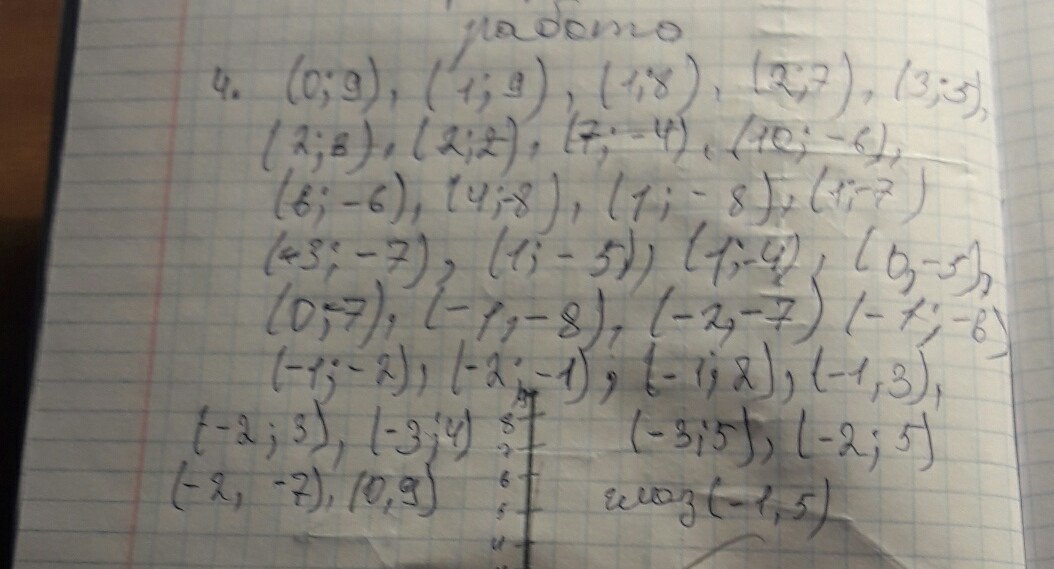 работа
4. (0; 9), (1; 9), (1; 8), (2; 7), (3; 5),
(2; 3), (2; 2), (7; -4), (10; -6),
(6; -6), (4; -8), (1; -8), (1; -7)
(-3; -7), (1; -5), (1; -4), (0, -5),
(0; -7), (-1, -8), (-2, -7) (-1; -6)
(-1; -2), (-2; -1), (-1; 2), (-1, 3),
(-2; 3), (-3; 4) (-3; 5), (-2; 5)
(-2, -7), (0, 9) глаз (-1, 5)
8
7
6
5
4